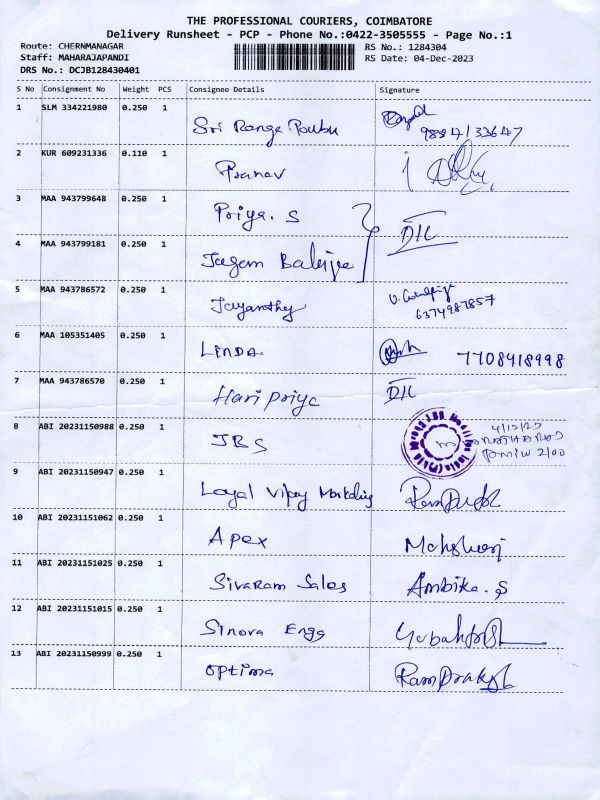 THE PROFESSIONAL COURIERS, COIMBATORE
Delivery Runsheet - PCP - Phone No.:0422-3505555 - Page No.:1
Route: CHERNMANAGAR
RS No.: 1284304
Staff: MAHARAJAPANDI
RS Date: 04-Dec-2023
DRS No.: DCJB128430401
S No Consignment No Weight PCS Consignee Details Signature
1 SLM 334221980 0.250 1
Sri Ranga
2 KUR 609231336 0.110 1
Pranav
3 MAA 943799648 0.250 1
Priya. S
DIL
4 MAA 943799181 0.250 1
5 MAA 943786572 0.250 1
Jayanthy
6374987857
6 MAA 105351405 0.250 1
LINDA
7708418998
7 MAA 943786570 0.250 1
Hari priya
DIL
8 ABI 20231150988 0.250 1
JBS
4/12/23
9 ABI 20231150947 0.250 1
Loyal Vijay Marketing
10 ABI 20231151062 0.250 1
Apex
11 ABI 20231151025 0.250 1
Sivaram Sales Ambika. S
12 ABI 20231151015 0.250 1
Sinova Engg
13 ABI 20231150999 0.250 1
Optima Ramprakash